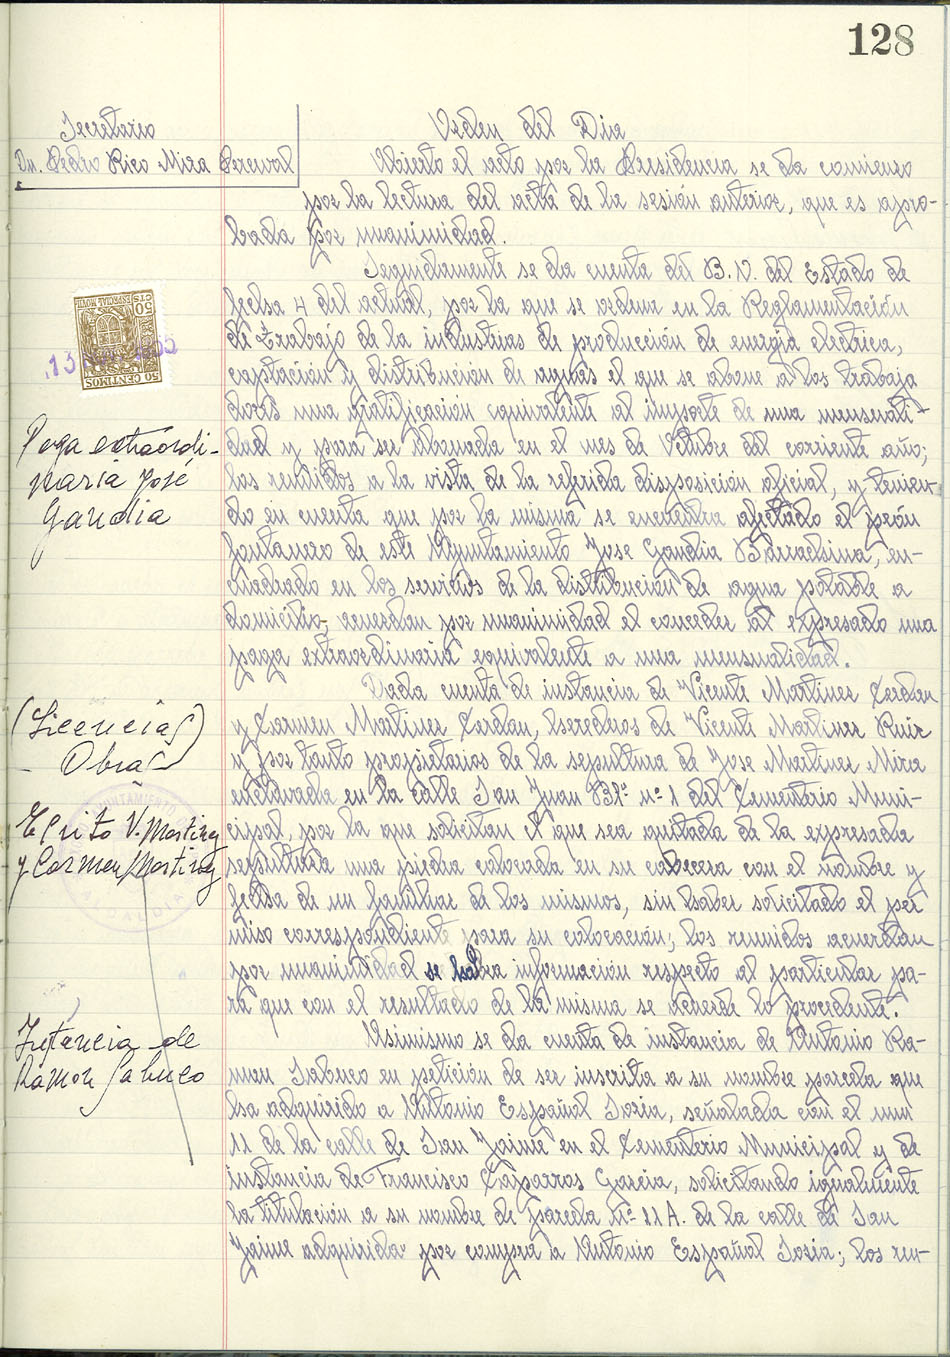 128
Secretario
Dn. Pedro Rico Mira Perceval
Orden del Dia
Abierto el acto por la Presidencia se da comienzo
por la lectura del acta de la sesión anterior, que es apro-
bada por unanimidad.
Seguidamente se da cuenta del B.O. del Estado de
fecha 4 del actual, por la que se ordena en la Reglamentación
de Trabajo de la industrias de producción de energia electrica,
captación y distribución de aguas el que se abone a los trabaja
dores una gratificación equivalente al importe de una mensuali-
dad y para ser abonada en el mes de Octubre del corriente año;
los reunidos a la vista de la referida disposición oficial, y tenien-
do en cuenta que por la misma se encuentra afectado el peón
fontanero de este Ayuntamiento Jose Gandia Barrachina, en-
cuadrado en los servicios de la distribución de agua potable a
domicilio, acuerdan por unanimidad el conceder al expresado una
paga extraordinaria equivalente a una mensualidad.
50 CTS
ESPECIAL MOVIL
50 CENTIMOS
13
Paga extraordi-
naria José
Gandia
Dada cuenta de instancia de Vicente Martinez Cerdan
y Carmen Martinez Cerdan, herederos de Vicente Martinez Ruiz
y por tanto propietarios de la sepultura de Jose Martinez Mira
enclavada en la calle San Juan Bta. nº 1 del Cementerio Muni-
cipal, por la que solicitan el que sea quitada de la expresada
sepultura una piedra colocada en su cabecera con el nombre y
fecha de un familiar de los mismos, sin haber solicitado el per
miso correspondiente para su colocación; los reunidos acuerdan
por unanimidad se habra información respecto al particular pa-
ra que con el resultado de la misma se acuerde lo procedente.
(Licencias)
Obras
AYUNTAMIENTO
Escrito V. Martinez
y Carmen Martinez
Asimismo se da cuenta de instancia de Antonio Ra-
mon Sabuco en petición de ser inscrita a su nombre parcela que
ha adquirido a Antonio Español Soria, señalada con el num
11 de la calle de San Jaime en el Cementerio Municipal y de
instancia de Francisco Caparros Garcia, solicitando igualmente
la titulación a su nombre de parcela nº 11 A. de la calle de San
Jaime adquirida por compra a Antonio Español Soria; los reu-
Instancia de
Ramón Sabuco